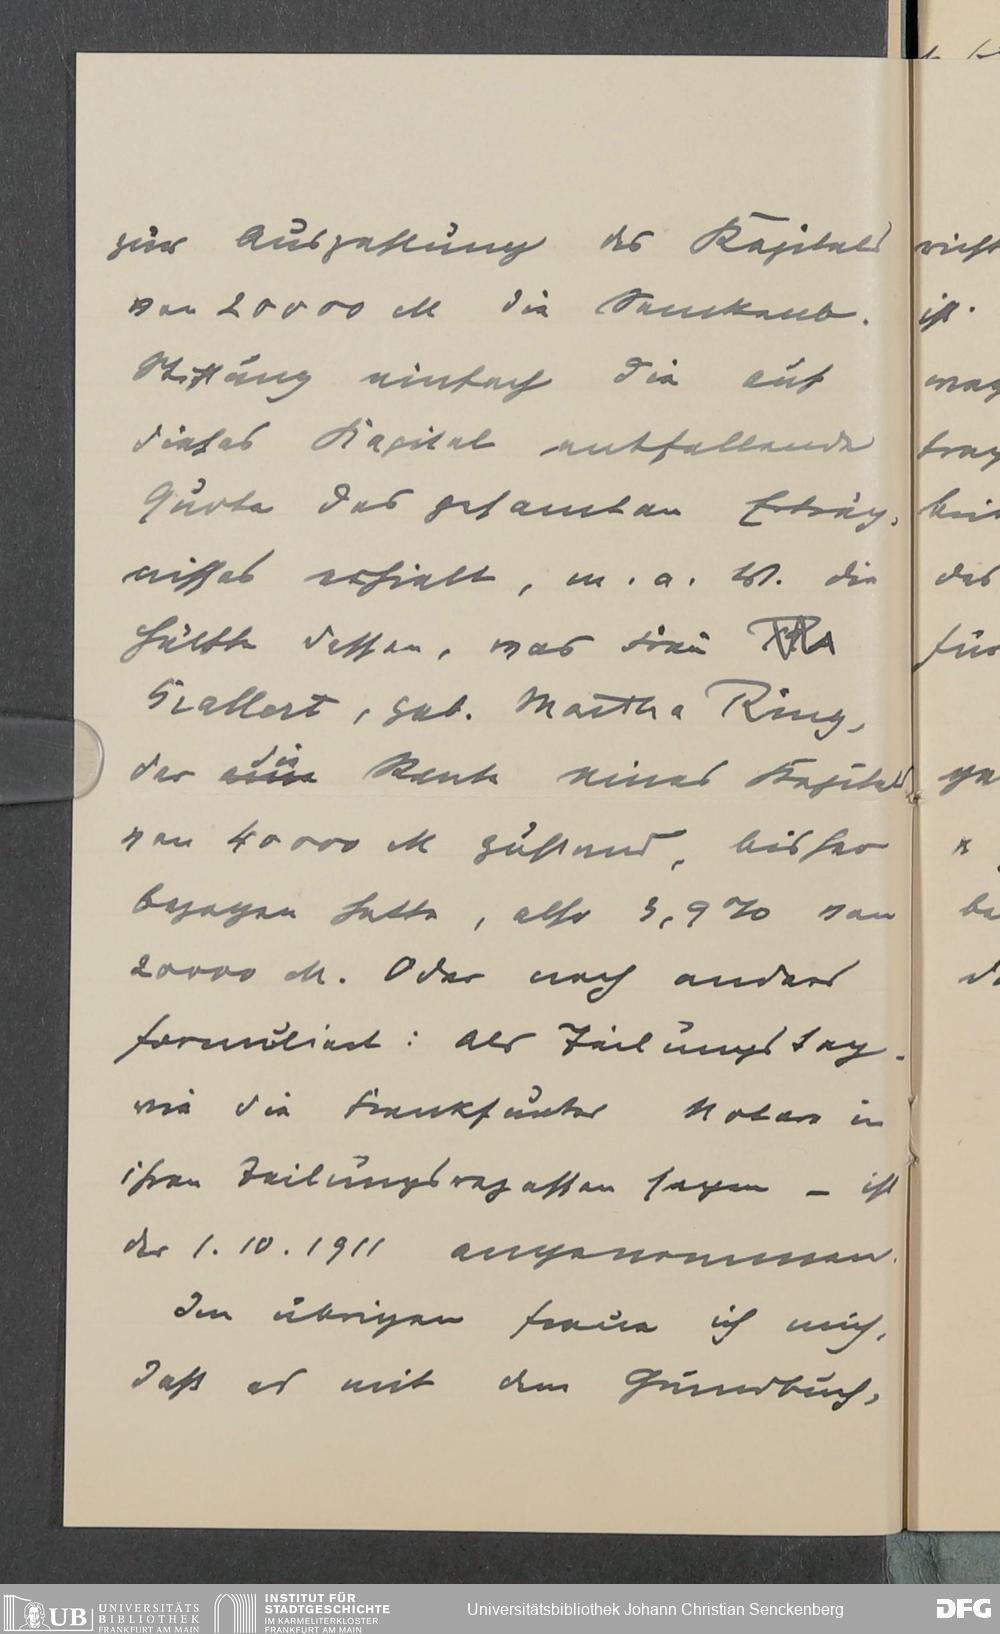 zur Auszahlung des Kapitals
von 20000 M die Senckenb.
Stiftung einfach die auf
dieses Kapital entfallende
Quote des gesamten Erträg-
nisses erhielt, m. a. W. die
Hälfte dessen, was Frau
geb. Martha Ring,
der die Rente eines Kapitals
von 40000 M zustand, bisher
bezogen hatte, also 3,9 % von
20000 M. Oder noch anders
formuliert: Als Teilungstag -
wie die Frankfurter Notare in
ihren Teilungsrezessen sagen - ist
der 1.10.1911 angenommen.
Im übrigen freue ich mich,
daß es mit dem Grundbuch-
nicht
ist.
des
für
UB UNIVERSITÄTS BIBLIOTHEK FRANKFURT AM MAIN
INSTITUT FÜR STADTGESCHICHTE IM KARMELITERKLOSTER FRANKFURT AM MAIN
Universitätsbibliothek Johann Christian Senckenberg
DFG